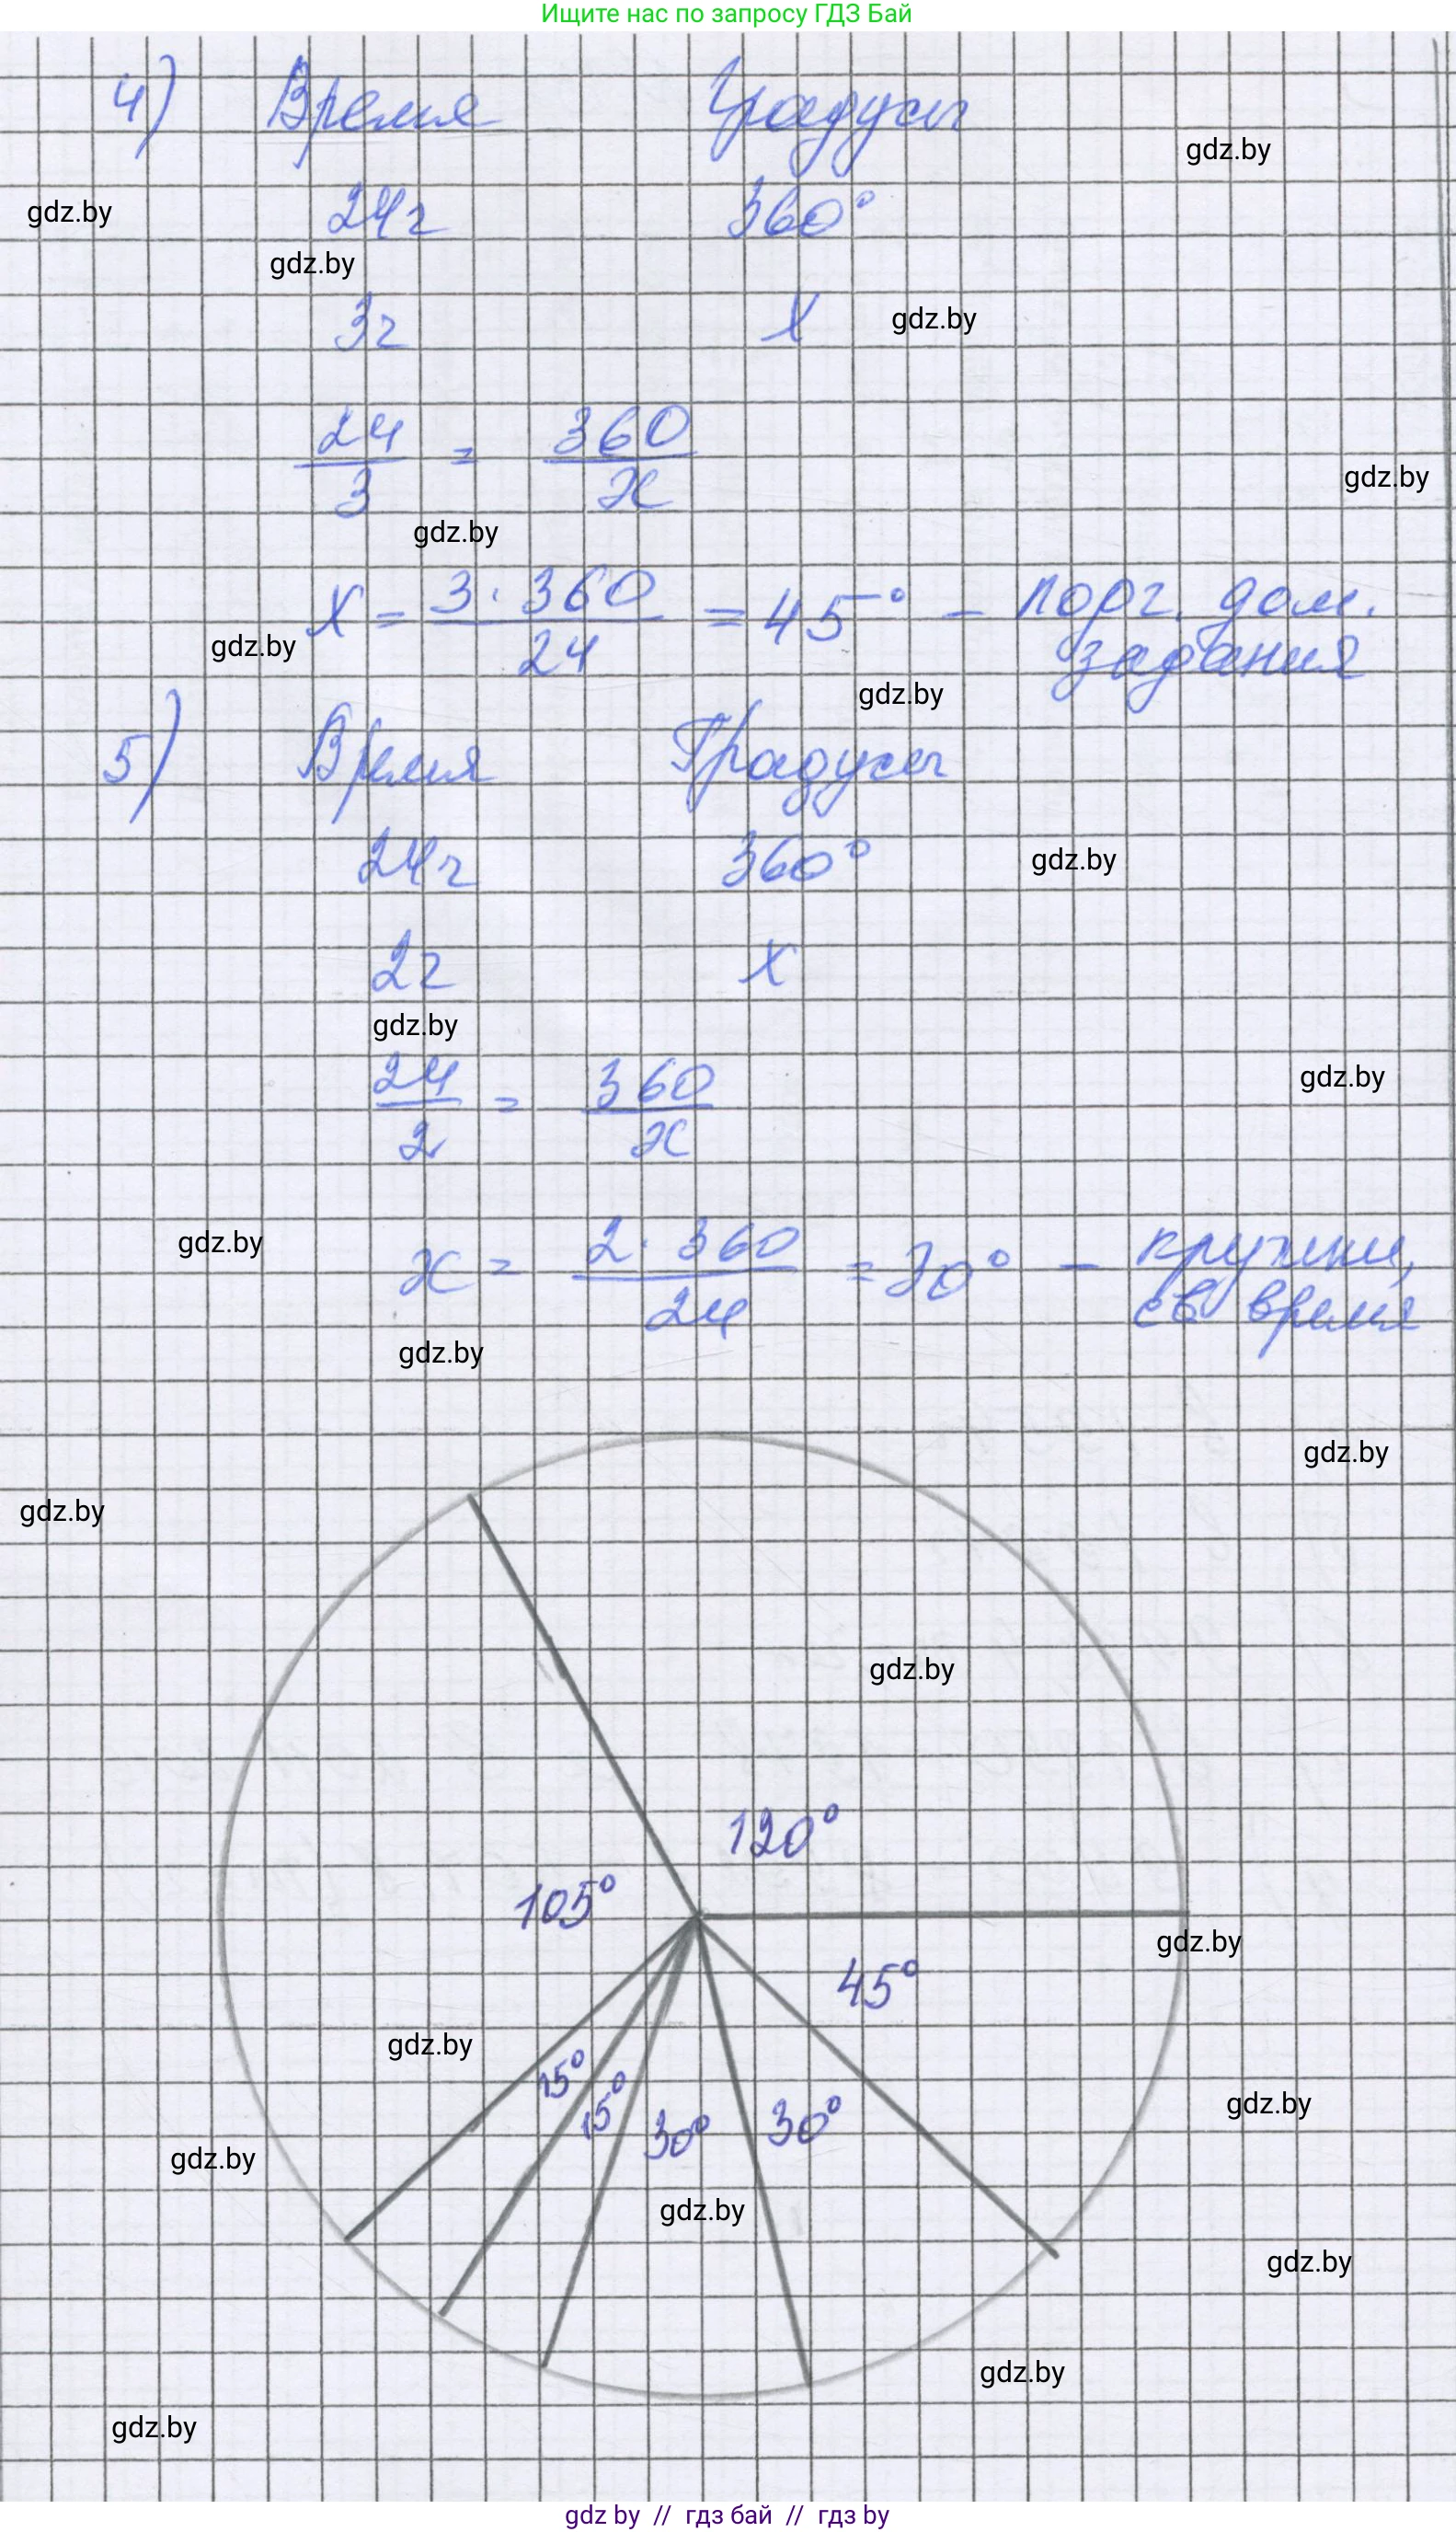 Ищите нас по запросу ГДЗ Бай
4) Время Градусы
gdz.by
gdz.by
24ч 360°
gdz.by
3ч x
gdz.by
24/3 = 360/x
gdz.by
gdz.by
x = 3·360/24 = 45° – подг. дом. задания
gdz.by
gdz.by
5) Время Градусы
24ч 360°
gdz.by
2ч x
gdz.by
24/2 = 360/x
gdz.by
gdz.by
x = 2·360/24 = 30° – кружки, св время
gdz.by
gdz.by
gdz.by
gdz.by
120°
105°
gdz.by
45°
gdz.by
15°
15°
30°
30°
gdz.by
gdz.by
gdz.by
gdz.by
gdz.by
gdz.by
gdz by // гдз бай // гдз by